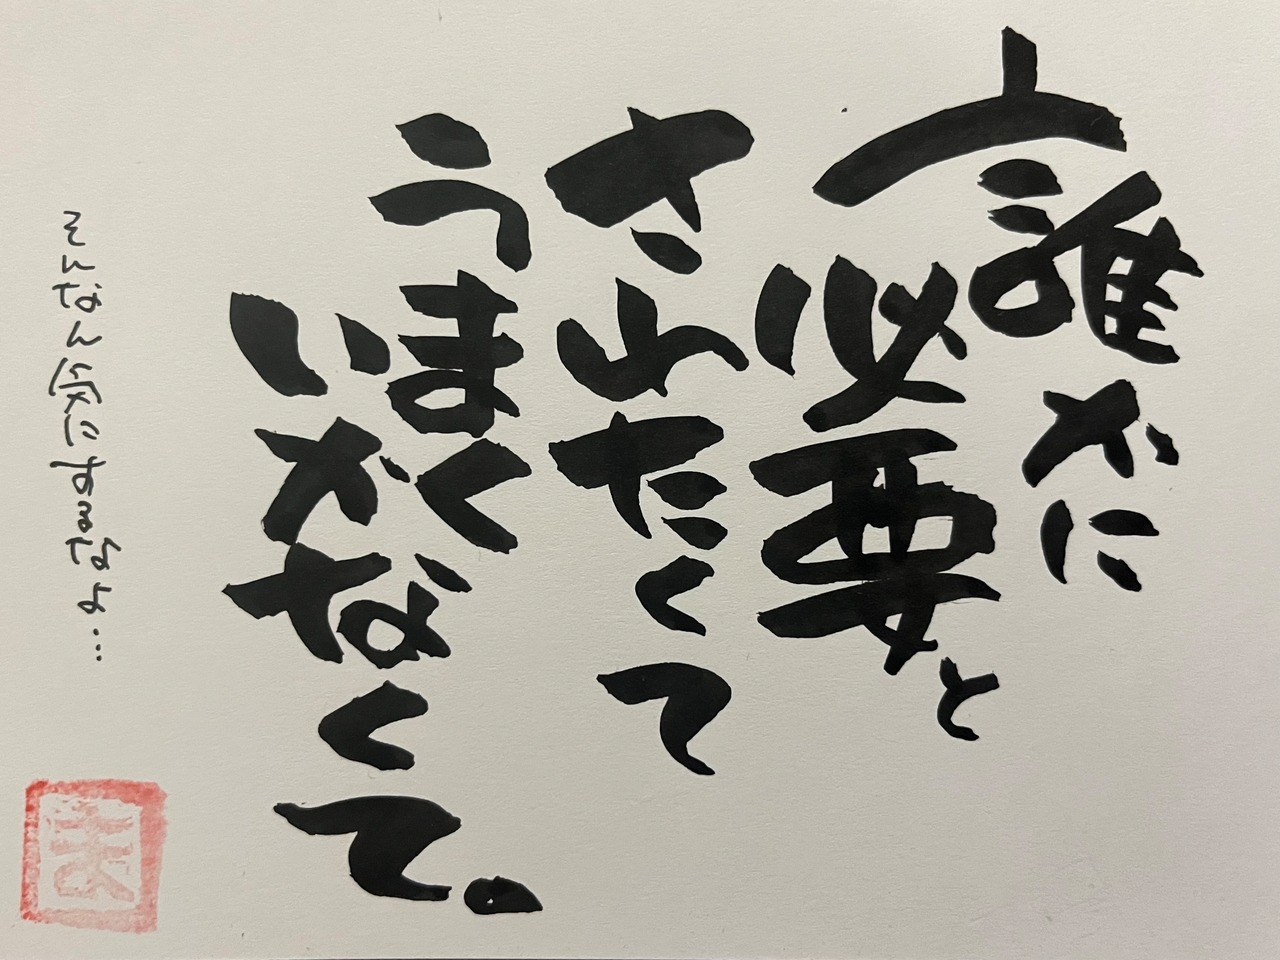 誰かに
必要と
されたくて
うまく
いかなくて。
そんなん気にするなよ…
ま